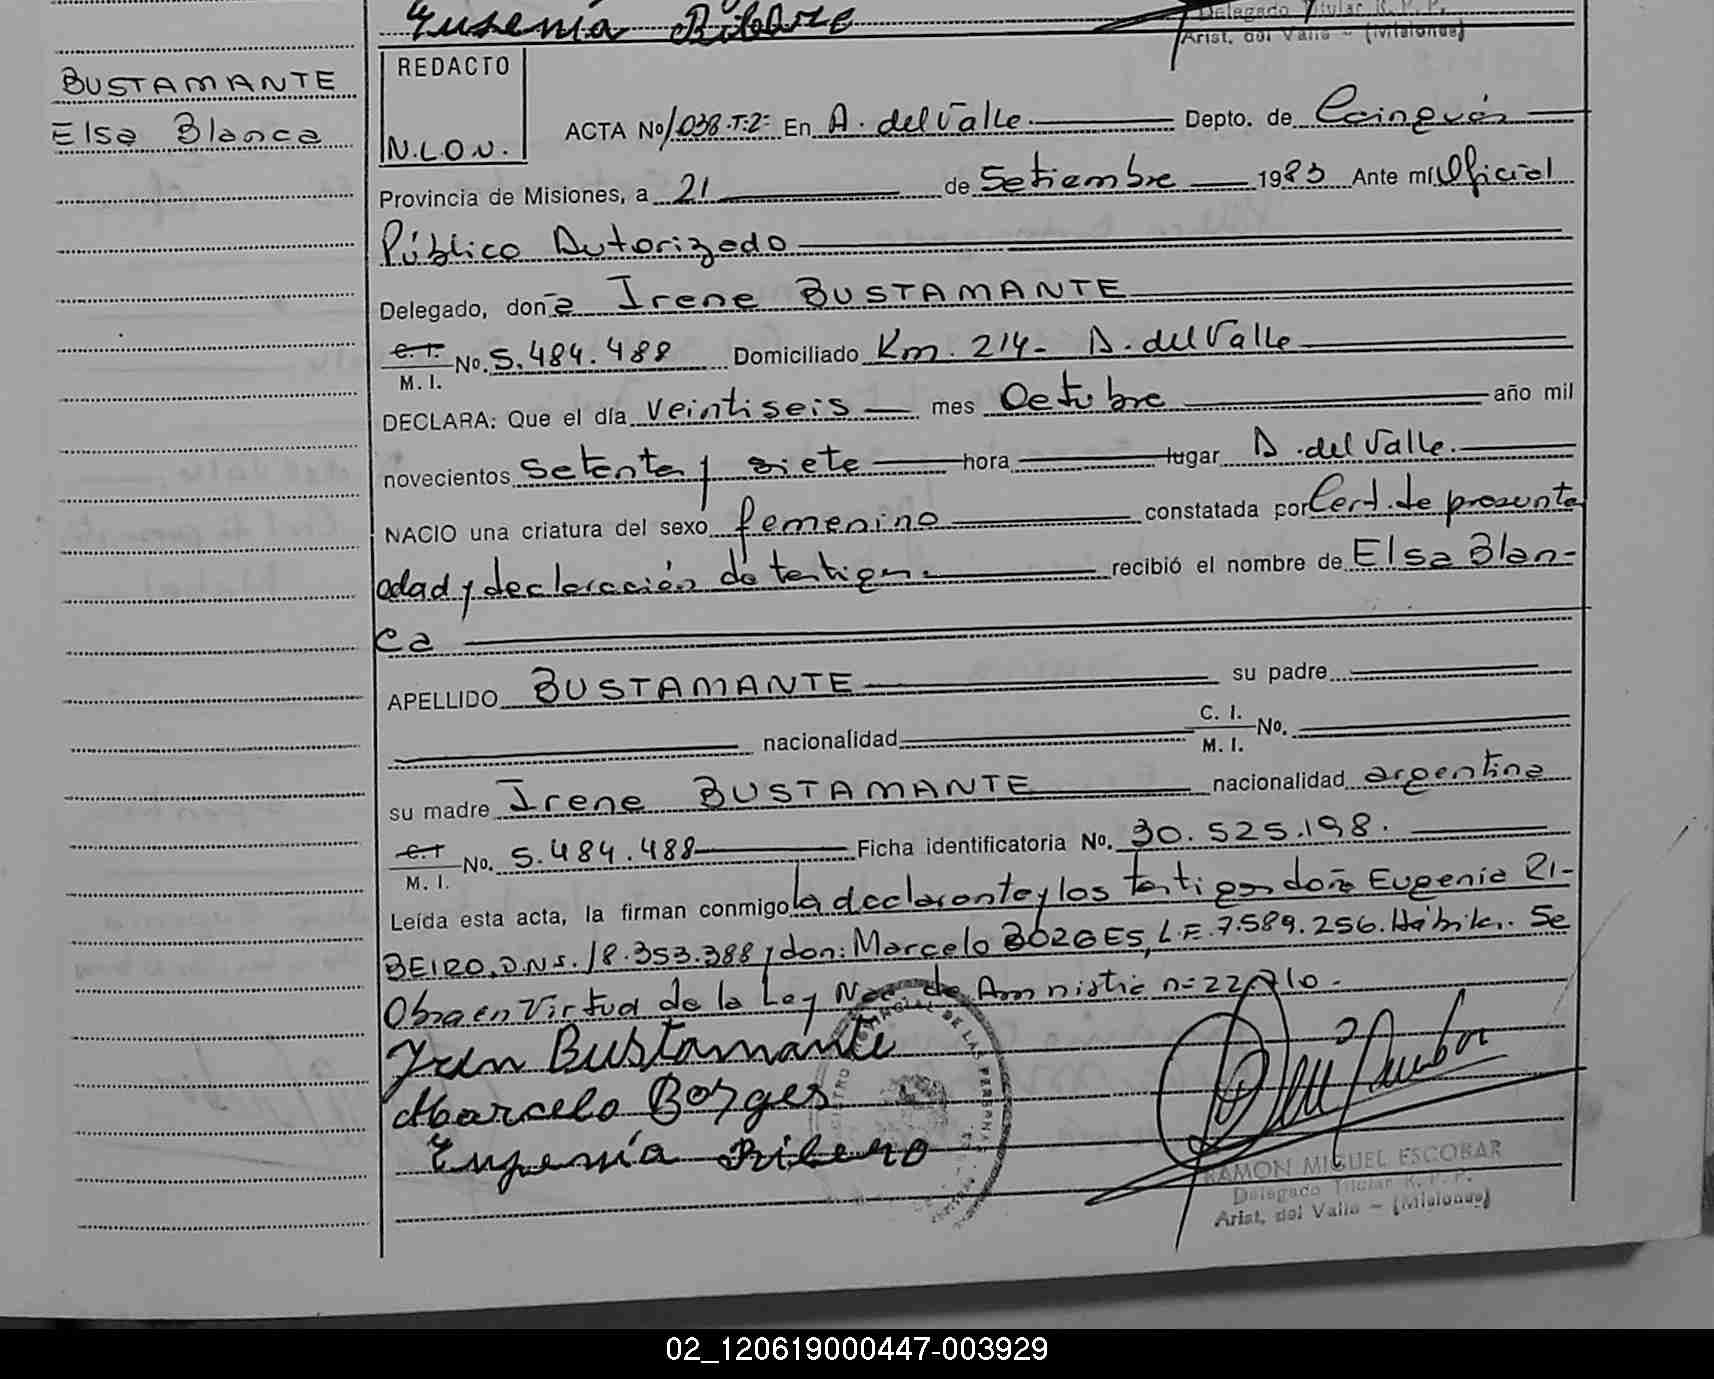 Eugenia Ribero
Delegado Titular R. P. P.
Arist. del Valle - (Misiones)
BUSTAMANTE
Elsa Blanca
REDACTO
N.L.O.N.
ACTA No 1038.T:2= En A. del Valle. Depto. de Cainguás
Provincia de Misiones, a 21 de Setiembre 1983 Ante mí Oficial
Público Autorizado
Delegado, doña Irene BUSTAMANTE
C. I. M. I. No. 5.484.488 Domiciliado Km. 214- A. del Valle
DECLARA: Que el día veintiseis mes Octubre año mil
novecientos setenta y siete hora lugar A. del Valle.
NACIO una criatura del sexo femenino constatada por Cert. de presunta
edad y declaración de testigos.- recibió el nombre de Elsa Blan-
ca
APELLIDO BUSTAMANTE su padre
nacionalidad C. I. M. I. No.
su madre Irene BUSTAMANTE nacionalidad argentina
C. I M. I. No. 5.484.488 Ficha identificatoria No. 30.525.198.
Leída esta acta, la firman conmigo la declarante y los testigos doña Eugenia RI-
BEIRO, D.N.I. 18.353.388 y don: Marcelo BORGES, L.E. 7.589.256. Hábiles. Se
Obra en Virtud de la Ley Nac. de Amnistia n= 22.710.-
Bustamante
Marcelo Borges
Eugenia Ribero
DE LAS PERSONAS
RAMON MIGUEL ESCOBAR
Delegado Titular R. P. P.
Arist. del Valle - (Misiones)
02_120619000447-003929